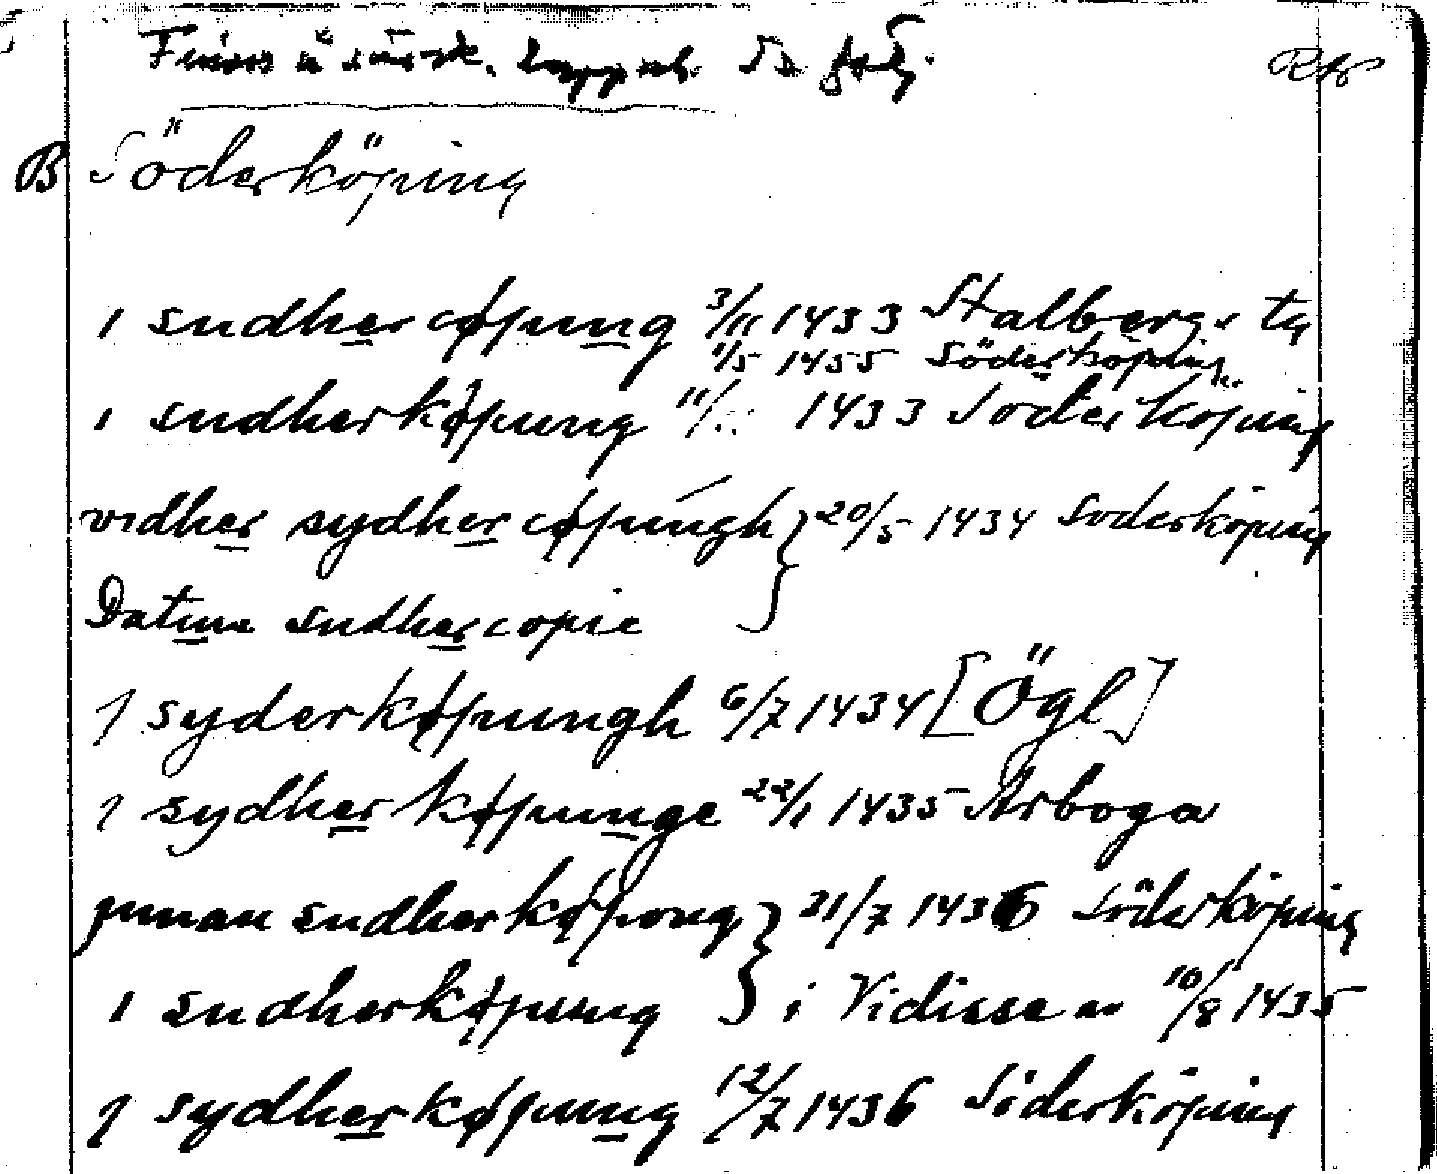 Finns ä särsk. uppsl. Se följ. RA
B Söderköping
ı sudher cøpung 3/11 1433 Stalbergs ty
1/5 1455 Söderköping
ı sudherkøpung 11/... 1433 Söderköping
vidher sydher cøpungh } 20/5 1434 Söderköping
Datum sudhercopie
j syderkøpungh 6/7 1434 [Ögl]
j sydherkøpunge 22/1 1435 Arboga
jnnan sudherkøpong } 21/7 1436 Söderköping
ı sudherkøpung } i Vidisse av 10/8 1435
j sydherkøpung 12/7 1436 Söderköping